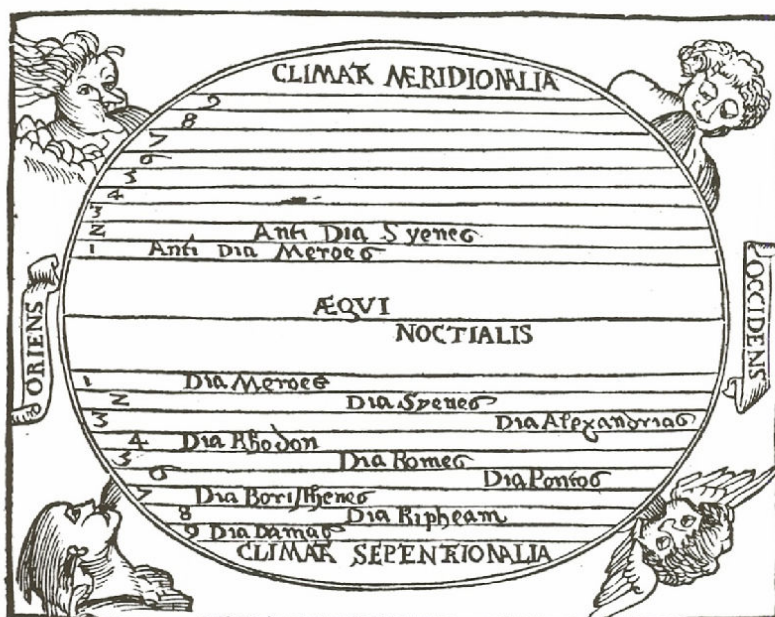 CLIMATA MERIDIONALIA
9
8
7
6
5
4
3
2 Anti Dia Syenes
1 Anti Dia Meroes
ORIENS
OCCIDENS
ÆQVI
NOCTIALIS
1 Dia Meroes
2 Dia Syenes
3 Dia Alexandrias
4 Dia Rhodon
5 Dia Romes
6 Dia Pontos
7 Dia Boristhenes
8 Dia Ripheam
9 Dia Damas
CLIMATA SEPENTRIONALIA